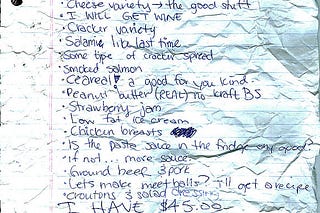 · Cheese variety → the good stuff
· I WILL GET WINE
· Cracker variety
· Salami, like last time
Some type of cracker spread
· Smoked salmon
· Cereal! a good for you kind.
· Peanut butter (REAL) no kraft BS
· Strawberry jam
· Low fat ice cream
· Chicken breasts
· Is the pasta sauce in the fridge any good?
· if not... more sauce.
· Ground beef & pork
· Lets make meetballs? i'll get a recipe
· croutons & salad dressing
I HAVE $45.00